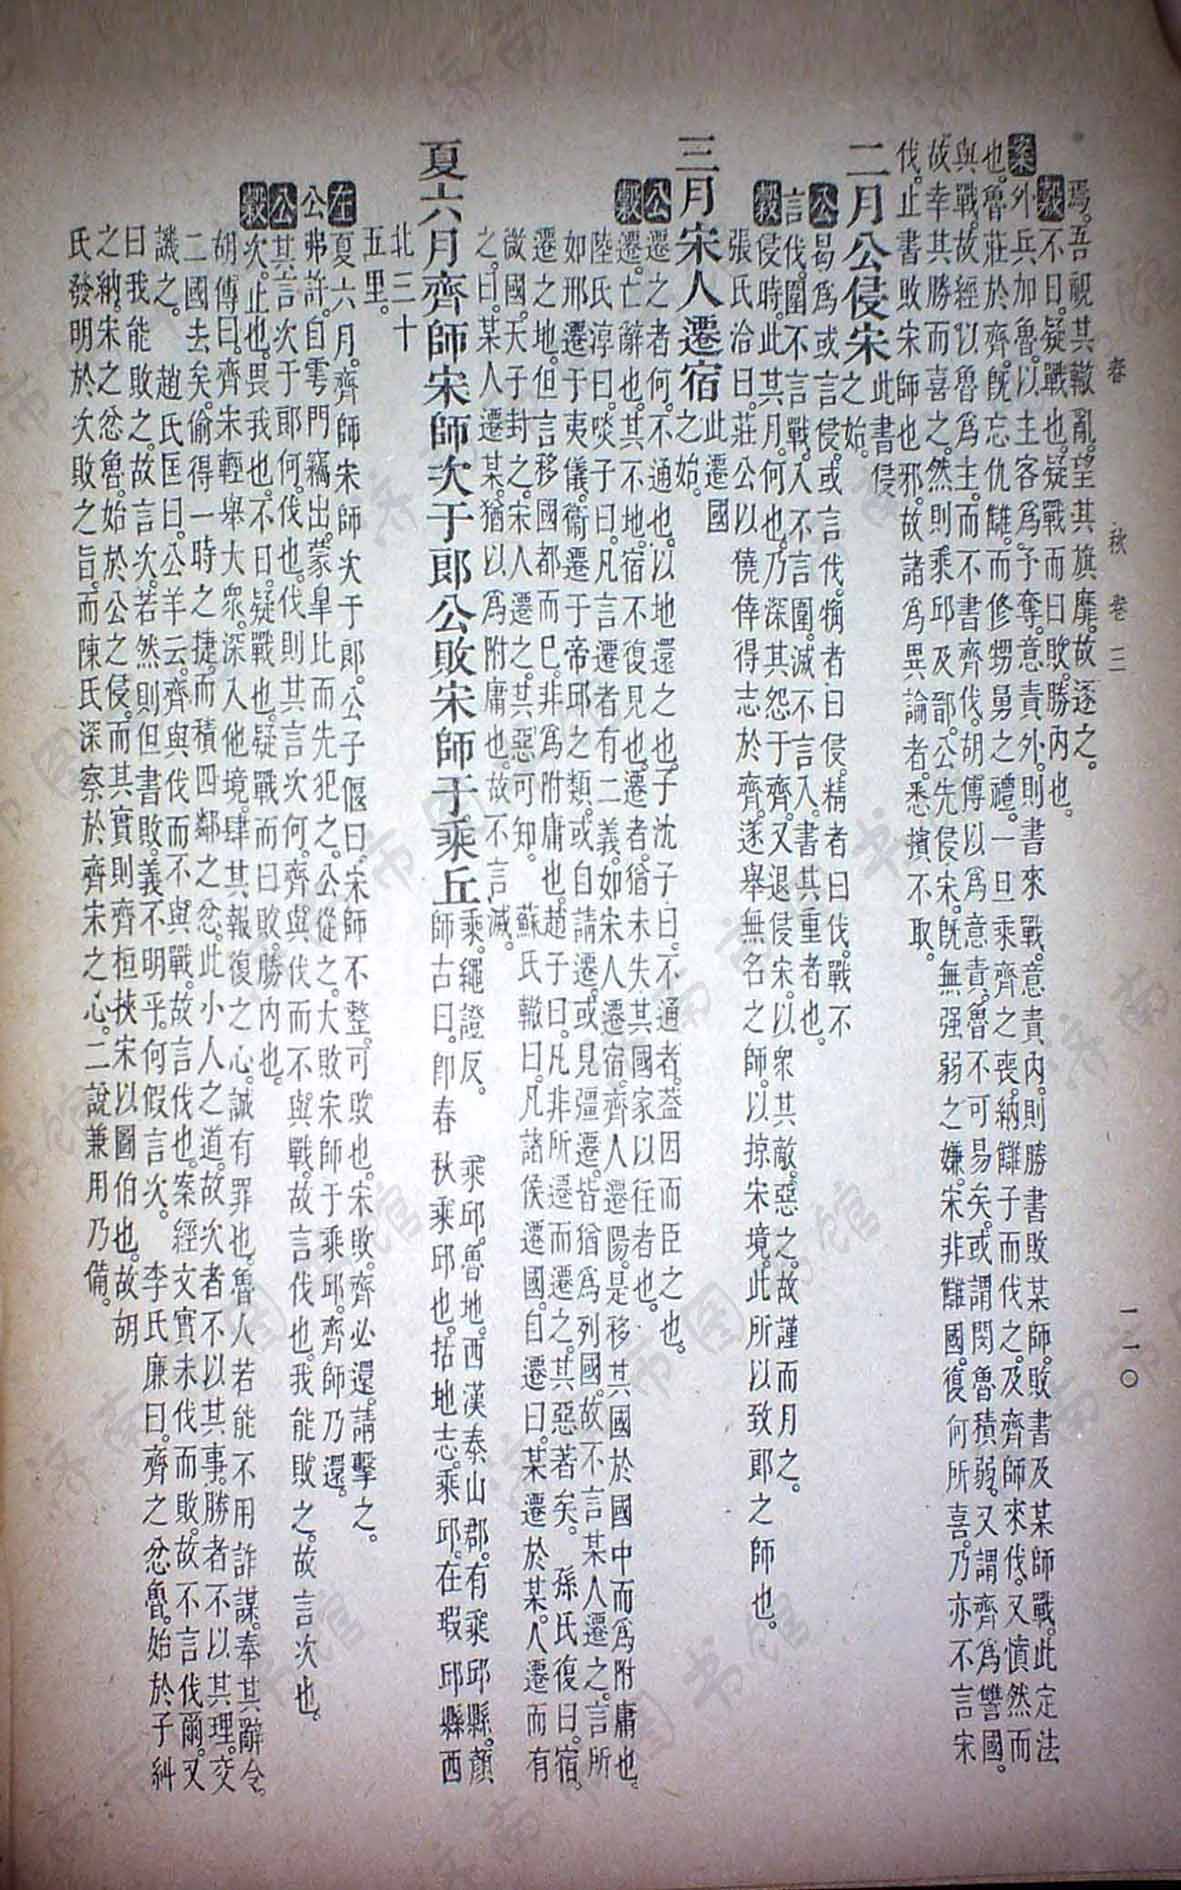 春秋 卷三 一一〇
焉。吾視其轍亂。望其旗靡。故逐之。
穀不日。疑戰也。疑戰而曰敗。勝內也。
案外兵加魯。以主客爲予奪。意責外。則書來戰。意責內。則勝書敗某師。敗書及某師戰。此定法
也。魯莊於齊。旣忘仇讎。而修甥舅之禮。一旦乘齊之喪。納讎子而伐之。及齊師來伐。又憤然而
與戰。故經以魯爲主。而不書齊伐。胡傳以爲意責魯。不可易矣。或謂閔魯積弱。又謂齊爲讐國。
故幸其勝而喜之。然則乘邱及鄑。公先侵宋。旣無强弱之嫌。宋非讎國。復何所喜。乃亦不言宋
伐。止書敗宋師也邪。故諸爲異論者。悉擯不取。
二月公侵宋 此書侵之始。
公曷爲或言侵。或言伐。觕者曰侵。精者曰伐。戰不
言伐。圍不言戰。入不言圍。滅不言入。書其重者也。
穀侵時。此其月。何也。乃深其怨于齊。又退侵宋。以衆其敵。惡之。故謹而月之。
張氏洽曰。莊公以僥倖得志於齊。遂舉無名之師。以掠宋境。此所以致郞之師也。
三月宋人遷宿 此遷國之始。
公遷之者何。不通也。以地還之也。子沈子曰。不通者。蓋因而臣之也。
穀遷。亡辭也。其不地。宿不復見也。遷者。猶未失其國家以往者也。
陸氏淳曰。啖子曰。凡言遷者有二義。如宋人遷宿。齊人遷陽。是移其國於國中而爲附庸也。
如邢遷于夷儀。衞遷于帝邱之類。或自請遷。或見彊遷。皆猶爲列國。故不言某人遷之。言所
遷之地。但言移國都而已。非爲附庸也。趙子曰。凡非所遷而遷之。其惡著矣。 孫氏復曰。宿
微國。天子封之。宋人遷之。其惡可知。 蘇氏轍曰。凡諸侯遷國。自遷曰。某遷於某。人遷而有
之。曰。某人遷某。猶以爲附庸也。故不言滅。
夏六月齊師宋師次于郎公敗宋師于乘丘 乘。繩證反。 乘邱。魯地。西漢泰山郡。有乘邱縣。顏
師古曰。卽春秋乘邱也。括地志。乘邱。在瑕邱縣西
北三十
五里。
左夏六月。齊師宋師次于郎。公子偃曰。宋師不整。可敗也。宋敗。齊必還。請擊之。
公弗許。自雩門竊出。蒙皐比而先犯之。公從之。大敗宋師于乘邱。齊師乃還。
公其言次于郎何。伐也。伐則其言次何。齊與伐而不與戰。故言伐也。我能敗之。故言次也。
穀次。止也。畏我也。不日。疑戰也。疑戰而曰敗。勝內也。
胡傳曰。齊宋輕舉大衆。深入他境。肆其報復之心。誠有罪也。魯人若能不用詐謀。奉其辭令。
二國去矣。偷得一時之捷。而積四鄰之忿。此小人之道。故次者不以其事。勝者不以其理。交
譏之。 趙氏匡曰。公羊云。齊與伐而不與戰。故言伐也。案經文實未伐而敗。故不言伐爾。又
曰。我能敗之。故言次。若然。則但書敗。義不明乎。何假言次。 李氏廉曰。齊之忿魯。始於子糾
之納。宋之忿魯。始於公之侵。而其實則齊桓挾宋以圖伯也。故胡
氏發明於次敗之旨。而陳氏深察於齊宋之心。二說兼用乃備。